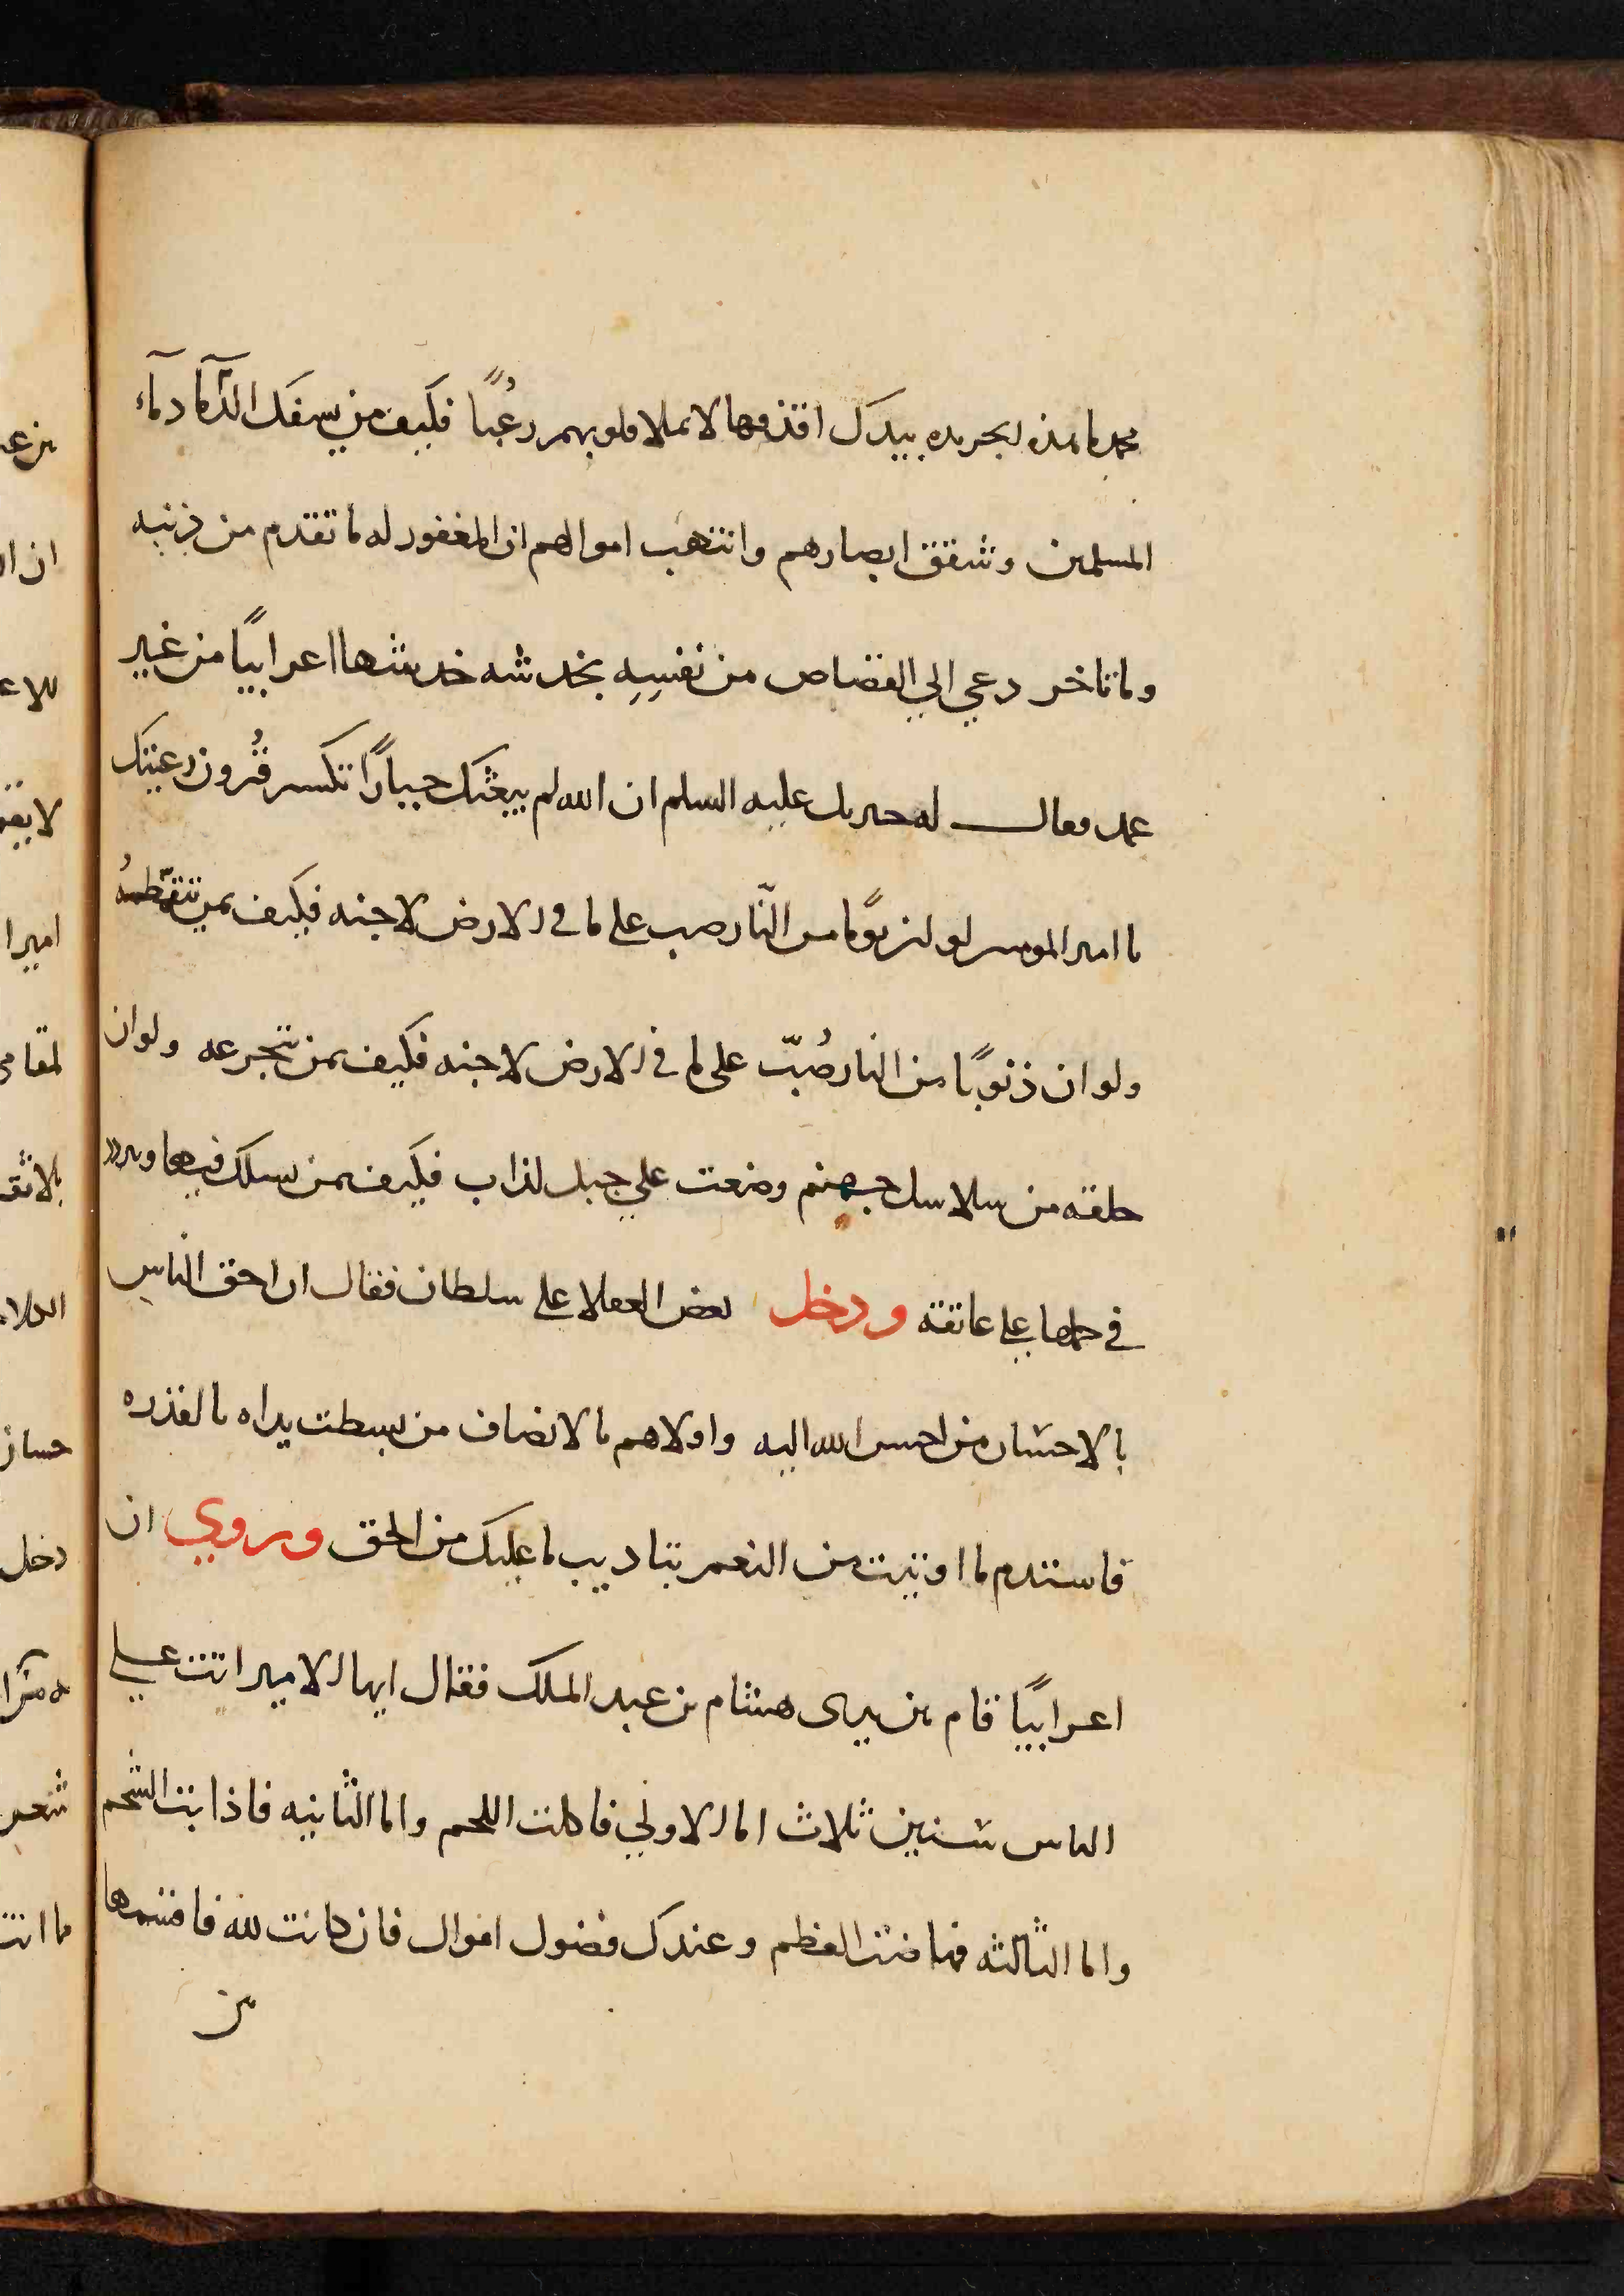 محمد ما هذه الجريده بيدك اقذفها لا تملا قلوبهم رعُبًا فكيف من سفك الدّمآ دمآء
المسلمين وشقق ابصارهم وانتهب اموالهم ان المغفور له ما تقدم من ذنبه
وما تاخر دعي الي القصاص من نفسِهِ بخدشه خدشها اعرابيًا من غير
عمد فقال له جبريل عليه السلم ان الله لم يبعثك جبارًا تكسر قُرون رعيتك
يا امير المومنين لو ان ثوبًا من النّار صب على ما في الارض لاحبه فكيف بمن تتقمّطهُ
ولو ان ذنوبًا من النار صُبّت على ما في الارض لاجنه فكيف بمن يتجرعه ولو ان
حلقه من سلاسل جهنم وضعت علي جبل لذاب فكيف بمن يسلك فيها ويرد
في حملها علي عاتقه ودخل بعض العقلا على سلطان فقال ان احق الناس
بالاحسان من احسن الله اليه واولاهم بالانصاف من بسطت يداه بالقدره
فاستدم ما اوتيت من النعم بتاديب ما عليك من الحق وروي ان
اعرابيًا قام بين يدى هشام بن عبد الملك فقال ايها الامير اتت علي
الناس سنين ثلاث اما الاولي فاكلت اللحم واما الثانيه فاذابت الشحم
واما الثالثه فهاضت العظم وعندك فضول اموال فان كانت لله فاقسمها
بين